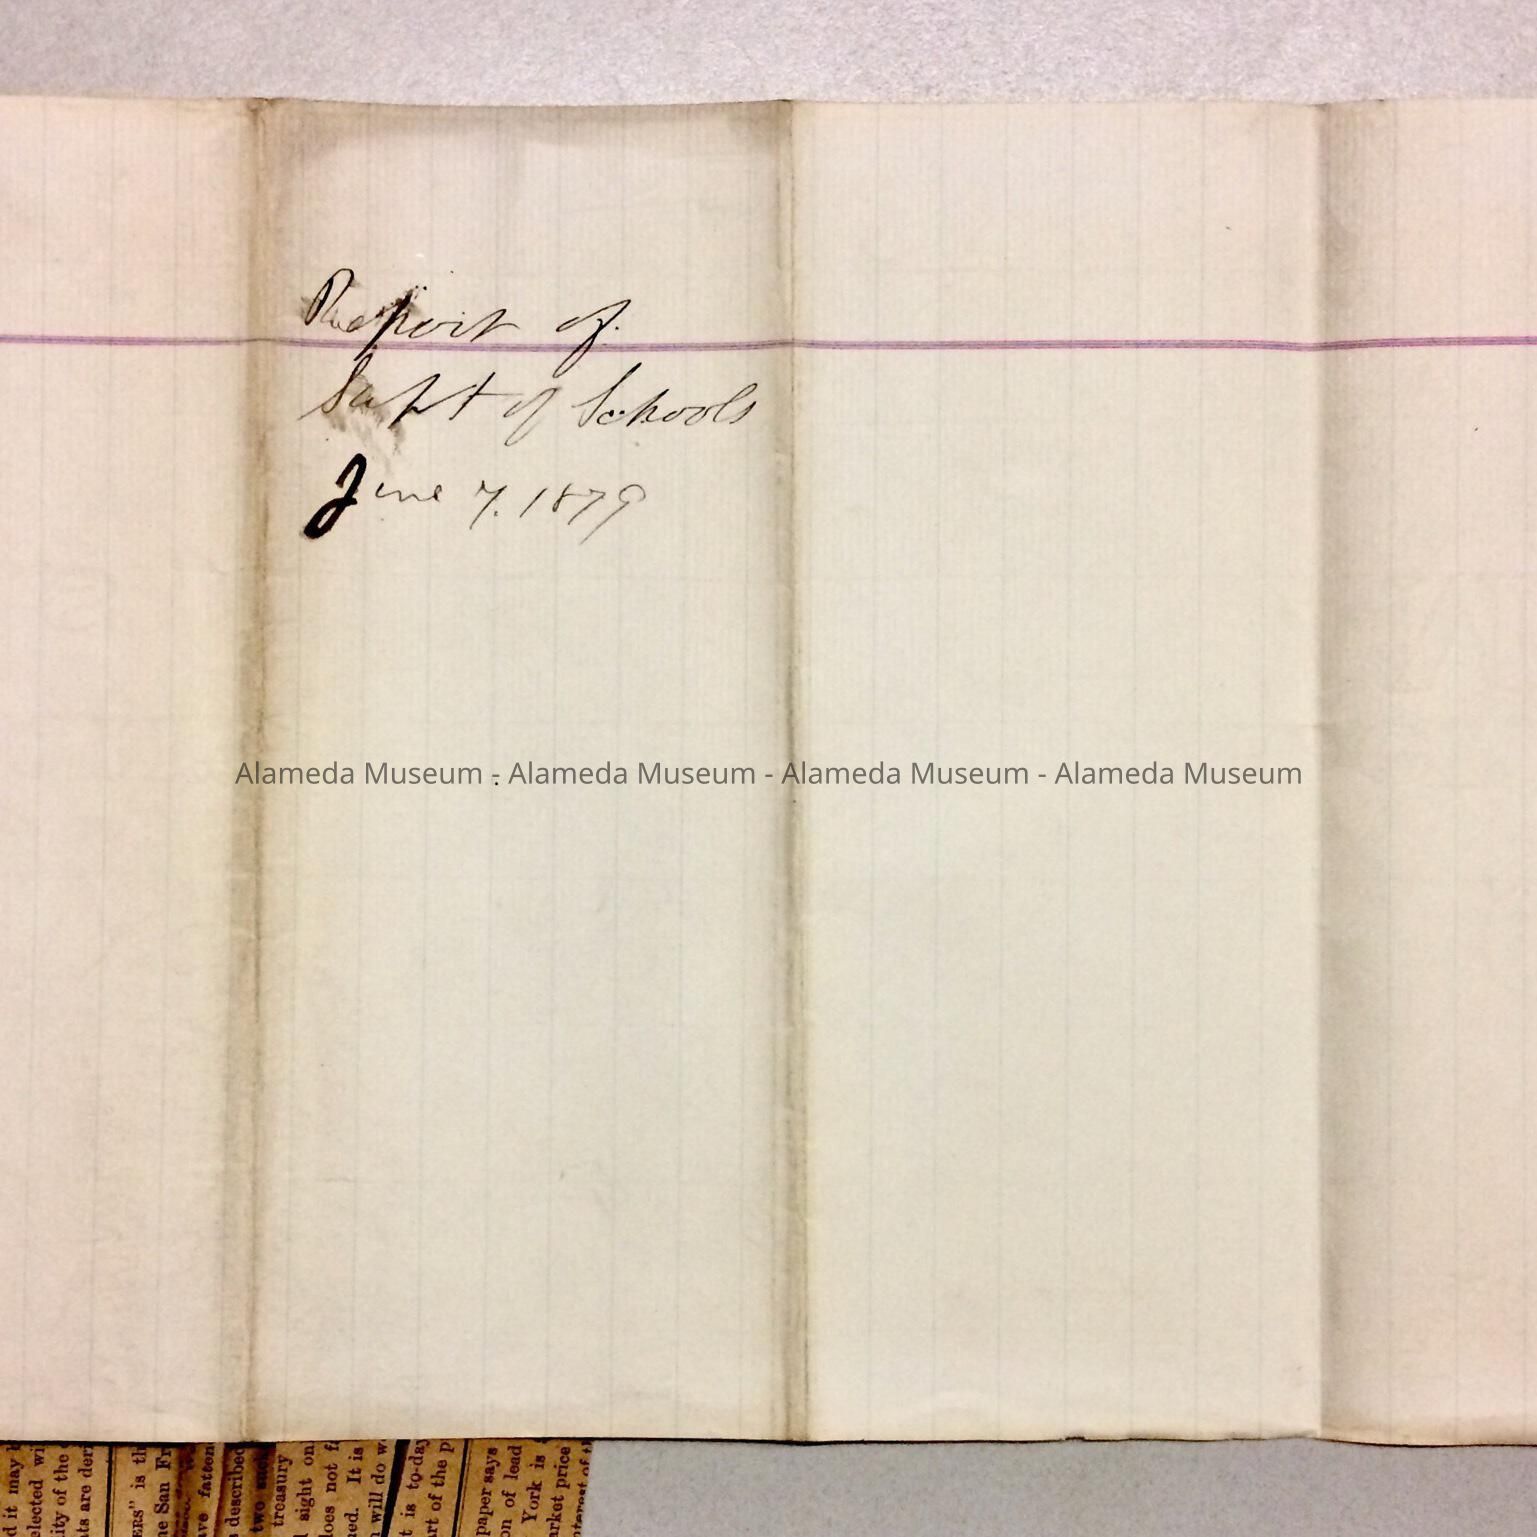 Report of
Supt of Schools
June 7. 1879
Alameda Museum - Alameda Museum - Alameda Museum - Alameda Museum
d it may
elected wi
ity of the
ts are deri
ERS" is th
he San Fr
ve fatten
described
two
treasury
l sight on
loes not f
ed. It is
will do w
t is to-day
rt of the p
paper says
on of lead
York is
arket price
nterest of t